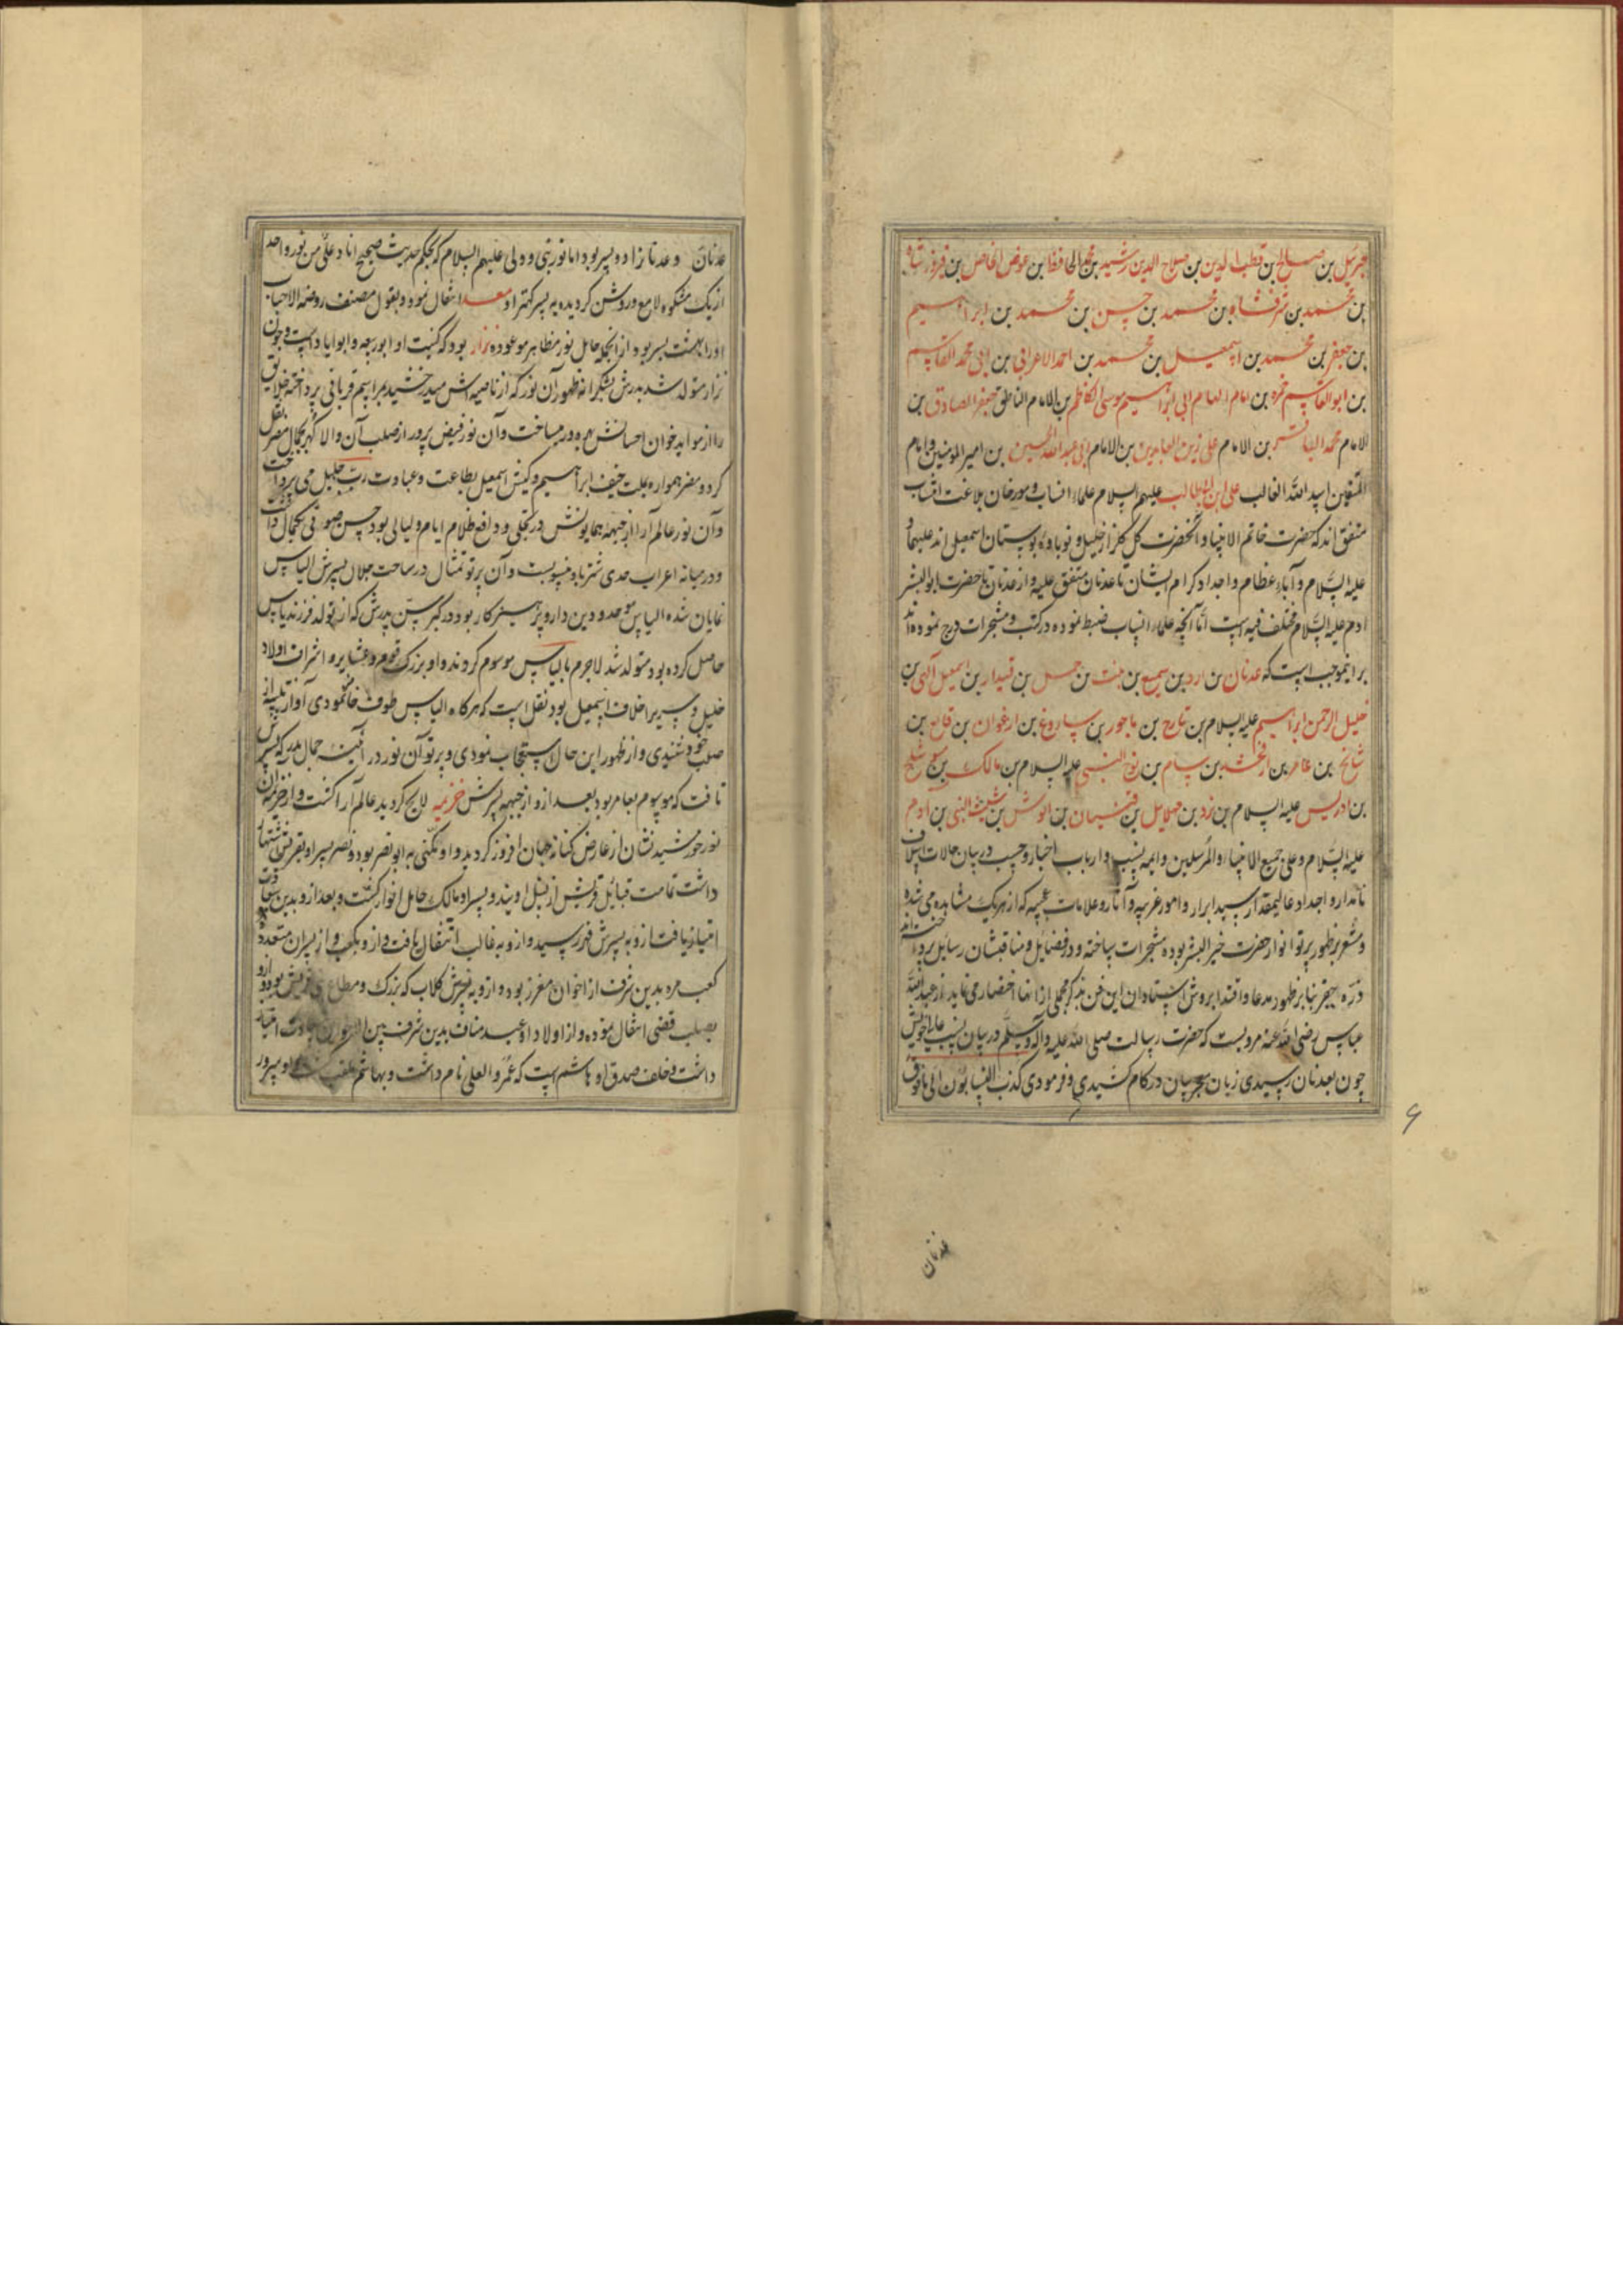 جبرئیل بن صالح بن قطب الدین بن صلاح الدین رشید بن محمد الحافظ بن عوض الخاص بن فیروز شاه
بن محمد بن شرفشاه بن محمد بن حسن بن محمد بن ابراهیم
بن جعفر بن محمد بن اسمعیل بن محمد بن احمد الاعرابی بن ابی محمد القاسم
بن ابو القاسم حمزه بن امام الهمام ابی ابراهیم موسی الکاظم بن الامام الناطق جعفر الصادق بن
الامام محمد الباقر بن الامام علی زین العابدین بن الامام ابی عبد الله الحسین بن امیر المومنین و امام
المتقین اسد الله الغالب علی ابن ابیطالب علیهم السلام علماء انساب و مورخان بلاغت انتساب
متفق اند که حضرت خاتم الانبیا و آنحضرت گل گلزار خلیل و نوباوه بوستان اسمعیل اند علیهما و
علیه السلام و آباء عظام و اجداد کرام ایشان تا عدنان متفق علیه و از عدنان تا حضرت ابو البشر
ادم علیه السلام مختلف فیه است اما آنچه علماء انساب ضبط نموده در کتب و مشجرات درج نموده اند
براینموجب است که عدنان بن ادد بن سمیع بن بنت بن حمل بن قیدار بن اسمعیل آلهی بن
خلیل الرحمن ابراهیم علیه السلام بن تارح بن ماجور بن ساروغ بن ارغوان بن قالع بن
شالخ بن عامر بن ارفخشد بن سام بن نوح النبی علیه السلام بن مالک بن متوشلخ
بن ادریس علیه السلام بن یزد بن مهلایل بن قینان بن انوش بن شیث النبی بن ادم
علیه السلام و علی جمیع الانبیاء و المرسلین و ایمه نسب و ارباب اخبار و حسب در بیان حالات اسلاف
نامدار و اجداد عالیمقدار سید ابرار و امور غریبه و آثار و علامات عجیبه که از هر یک مشاهده می شده
و مشعر بر ظهور پرتو انوار حضرت خیر البشر بوده مشجرات ساخته و در فضایل و مناقبشان رسایل پرداخته اند
ذره بیحقر بنا بر ظهور مدعا و اقتدا بروش استادان این فن بذکر مجملی از انها اختصار می نماید از عبد الله
عباس رضی الله عنه مرویست که حضرت رسالت صلی الله علیه و اله و سلم در بیان نسب عالی خویش
چون بعدنان رسیدی زبان سحر بیان در کام کشیدی و فرمودی کذب النسابون الی ما فوق
عدنان
عدنان و عدنانرا دو پسر بود اما نور نبی و ولی علیهم السلام که بحکم حدیث صحیح انا و علی من نور واحد
از یک مشکوه لامع و روشن گردیده به پسر کهتر او معد انتقال نمود و بقول مصنف روضه الاحباب
اورا هشت پسر بود از انجمله حامل نور مظاهر موعوده نزار بود که کنیت او ابو ربیعه و ابو ایاد است و چون
نزار متولد شد پدرش بشکرانه ظهور آن نور که از ناصیه اش میدرخشید مراسم قربانی پرداخته خلایق
را از مواید خوان احسانش بهره ور ساخت و آن نور فیض پرور از صلب آن والا گهر بجمال مضر نقل
کرد و مضر همواره بملت حنیف ابراهیم و کیش اسمعیل بطاعت و عبادت رب جلیل می پرداخت
و آن نور عالم آرا از جبهه همایونش در تجلی و دافع ظلام ایام و لیالی بود حسن صوتی بکمال داشت
و در میانه اعراب حدی شتر باو منسوبست و آن پرتو تمثال در ساحت جلال پسرش الیاس
نمایان شده الیاس موحد و دین دار و پرهیزکار بود در کبر سن پدرش که از تولد فرزند یاس
حاصل کرده بود متولد شد لاجرم بالیاس موسوم کردند و او بزرک قوم و عشایر و اشراف اولاد
خلیل و سرور اخلاف اسمعیل بود نقل است که هرگاه الیاس طوف خانه نمودی آواز تلبیه از
صلب خود شنیدی و از ظهور این حال استعجاب نمودی و پرتو آن نور در آئینه جمال مدرکه پسرش
تافت که موسوم بعامر بود بعد ازو از جبهه پسرش خزیمه لایح گردید عالم آرا گشت و از خزیمه آن
نور خورشید نشان از عارض کنانه جهان افروز گردید و او مکنی به ابو نضر بود و نضر پسر او بقریش اشتهار
داشت تمامت قبایل قریش از نسل اویند و پسر او مالک حامل انوار گشت و بعد ازو بدین سعادت
امتیاز یافت ازو به پسرش فهر رسید و ازو به غالب انتقال یافت و ازو بکعب و از پسران متعدد
کعب مره بدین شرف از اخوان مفرز بود و ازو به پسرش کلاب که بزرک و مطاع قریش بود و ازو
بصلب قصی انتقال نموده و از اولاد او عبد مناف بدین شرف بین الاخوان سعادت امتیاز
داشت و خلف صدق او هاشم است که عمرو العلی نام داشت و بهاشم ملقب گشت و او سرور